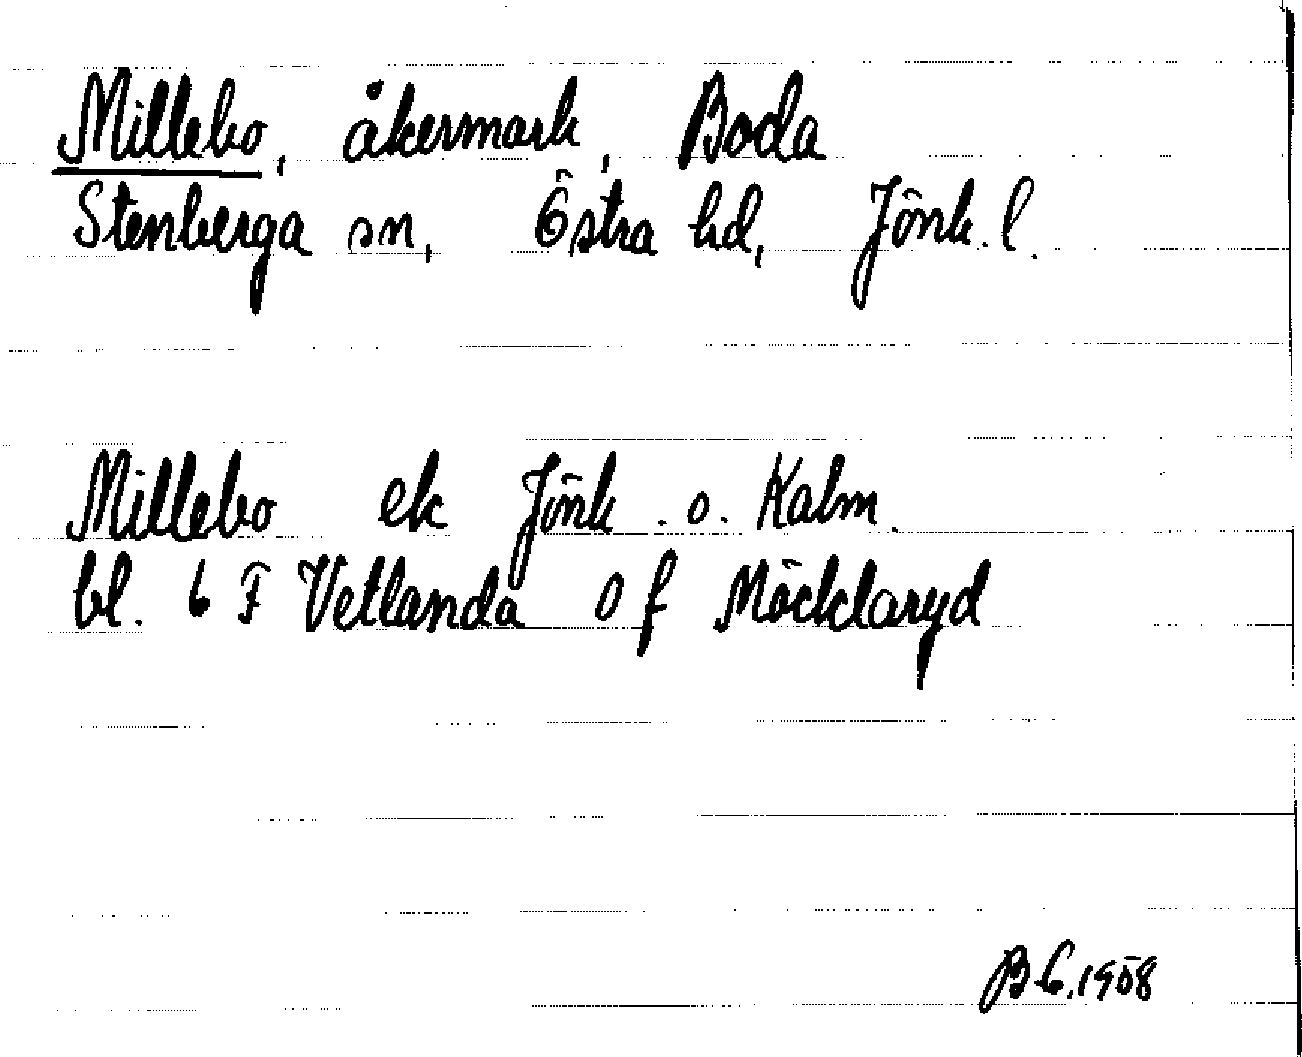 Millebo, åkermark, Boda
Stenberga sn, Östra hd, Jönk. l.
Millebo ek Jönk. o. Kalm.
bl. 6 F Vetlanda 0 f Möcklaryd
1958